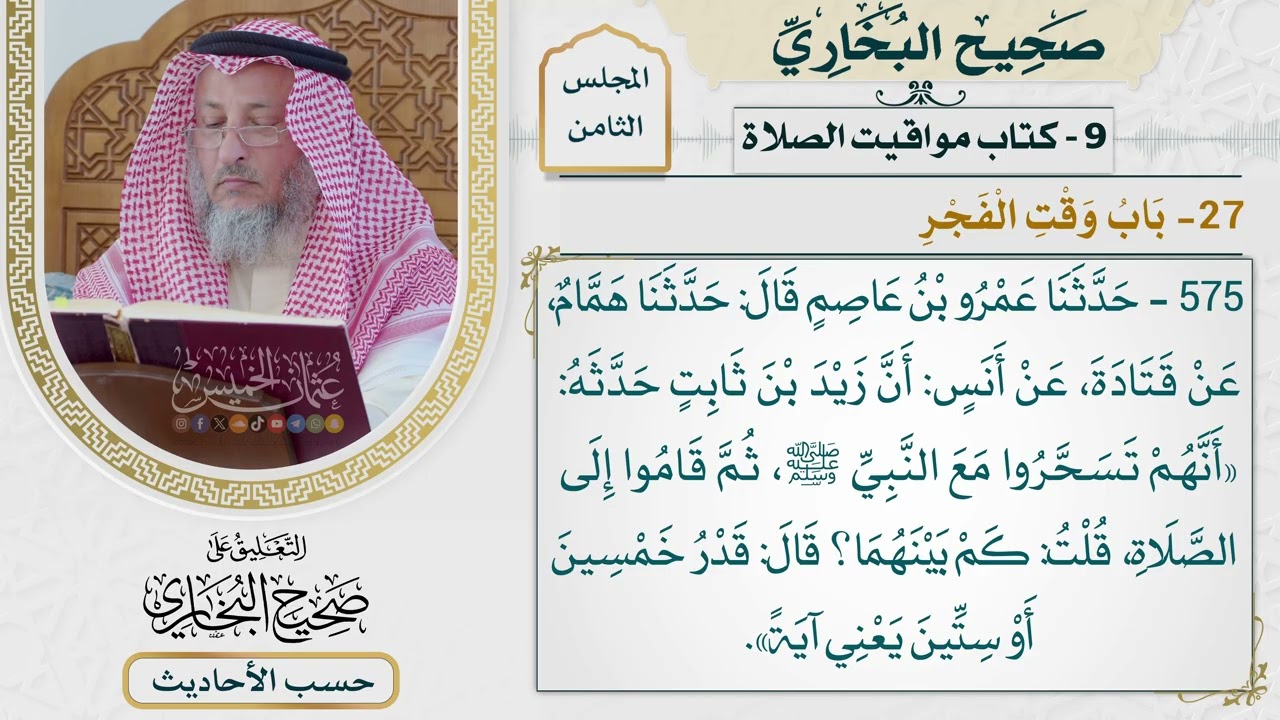 صَحِيح البُخَارِيِّ
المجلس
الثامن
9 - كتاب مواقيت الصلاة
27- بَابُ وَقْتِ الْفَجْرِ
575 - حَدَّثَنَا عَمْرُو بْنُ عَاصِمٍ قَالَ: حَدَّثَنَا هَمَّامٌ،
عَنْ قَتَادَةَ، عَنْ أَنَسٍ: أَنَّ زَيْدَ بْنَ ثَابِتٍ حَدَّثَهُ:
«أَنَّهُمْ تَسَحَّرُوا مَعَ النَّبِيِّ ﷺ، ثُمَّ قَامُوا إِلَى
الصَّلَاةِ، قُلْتُ: كَمْ بَيْنَهُمَا؟ قَالَ: قَدْرُ خَمْسِينَ
أَوْ سِتِّينَ يَعْنِي آيَةً».
عُثمان الخميس
التَّعْلِيقُ عَلَى
صَحِيحُ البُخَارِي
حسب الأحاديث